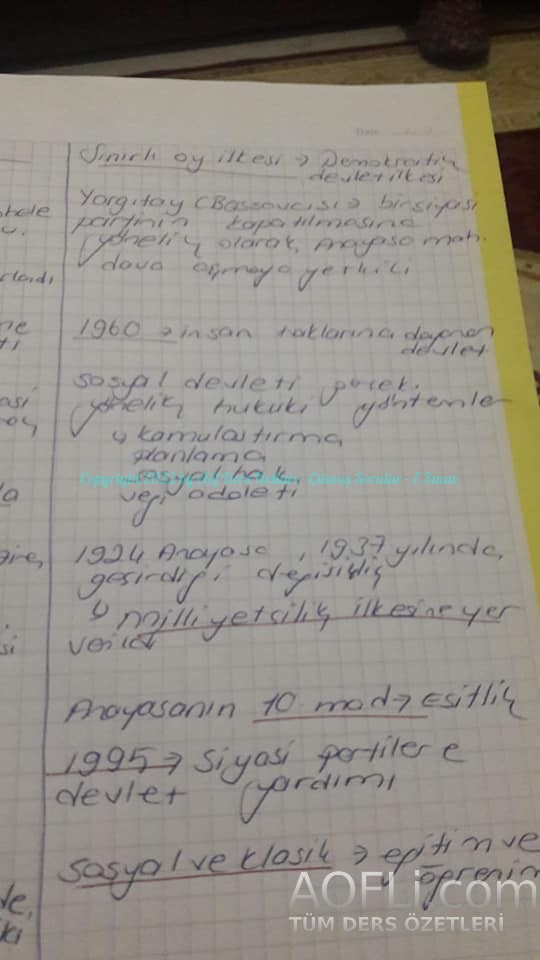 Date
Sınırlı oy ilkesi → Demokratik
devlet ilkesi
Yargıtay (Başsavcısı → bir siyasi
partinin kapatılmasına
yönelik olarak, Anayasa mah.
dava açmaya yetkili
1960 → insan haklarına dayanan
devlet
sosyal devleti gerçek.
yönelik hukuki yöntemler
↳ kamulaştırma
planlama
sosyal hak
vergi adaleti
1924 Anayasa, 1937 yılında,
geçirdiği değişiklik
↳ milliyetçilik ilkesine yer
verildi
Anayasanın 10 mad → Eşitlik
1995 → Siyasi partilere
devlet yardımı
sosyal ve klasik → eğitim ve
öğrenim
AOFLi.com
TÜM DERS ÖZETLERİ